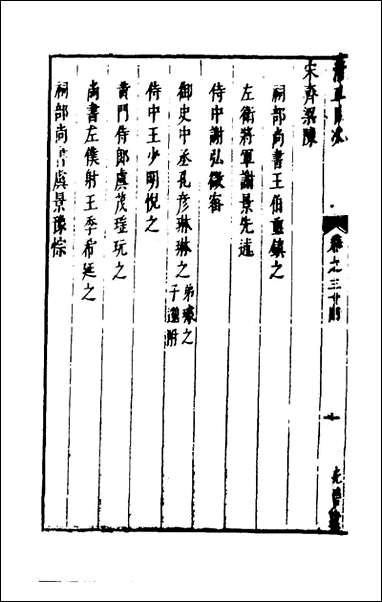 宋齊梁陳
祠部尚書王伯重鎮之
左衛將軍謝景先述
侍中謝弘微密
御史中丞孔彥琳琳之 弟璩之 子邈附
侍中王少明悅之
黃門侍郎虞茂瑤玩之
尚書左僕射王季希延之
祠部尚書虞景豫悰
卷之三